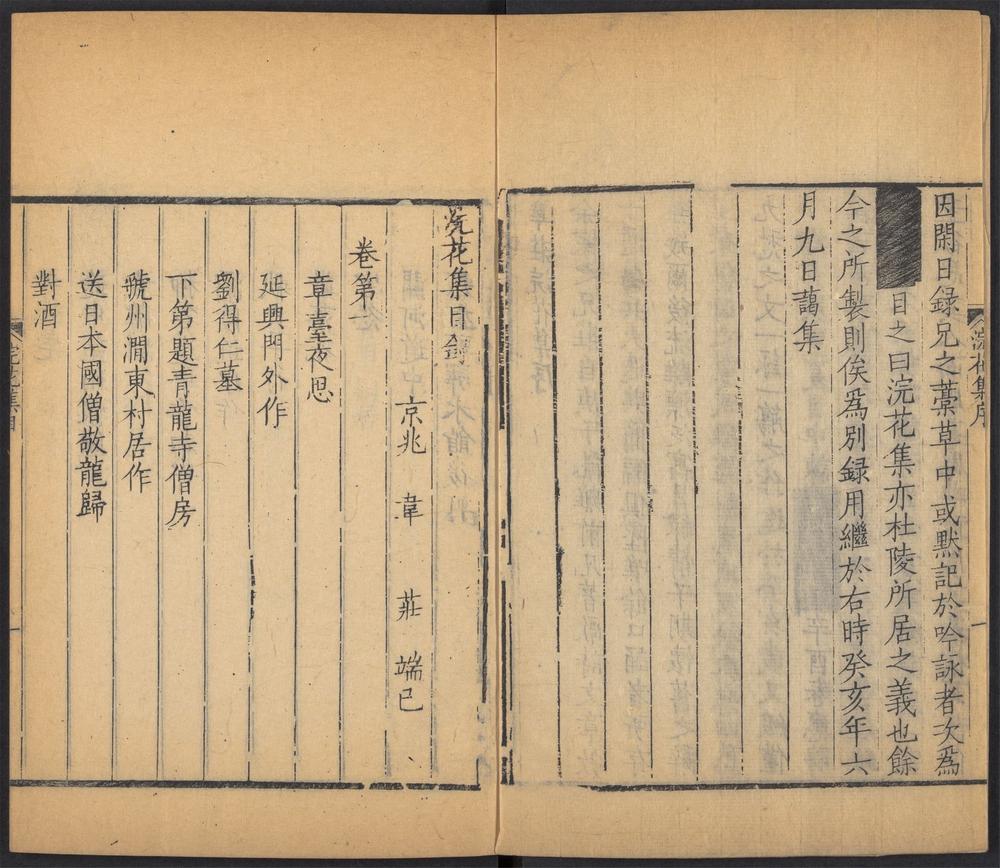 因閑日録兄之藁草中或默記於吟詠者次爲
目之曰浣花集亦杜陵所居之義也餘
今之所製則俟爲別録用繼於右時癸亥年六
月九日藹集
浣花集序
一
浣花集目録
京兆 韋 莊 端己
卷第一
章臺夜思
延興門外作
劉得仁墓
下第題青龍寺僧房
虢州澗東村居作
送日本國僧敬龍歸
對酒
浣花集目
一